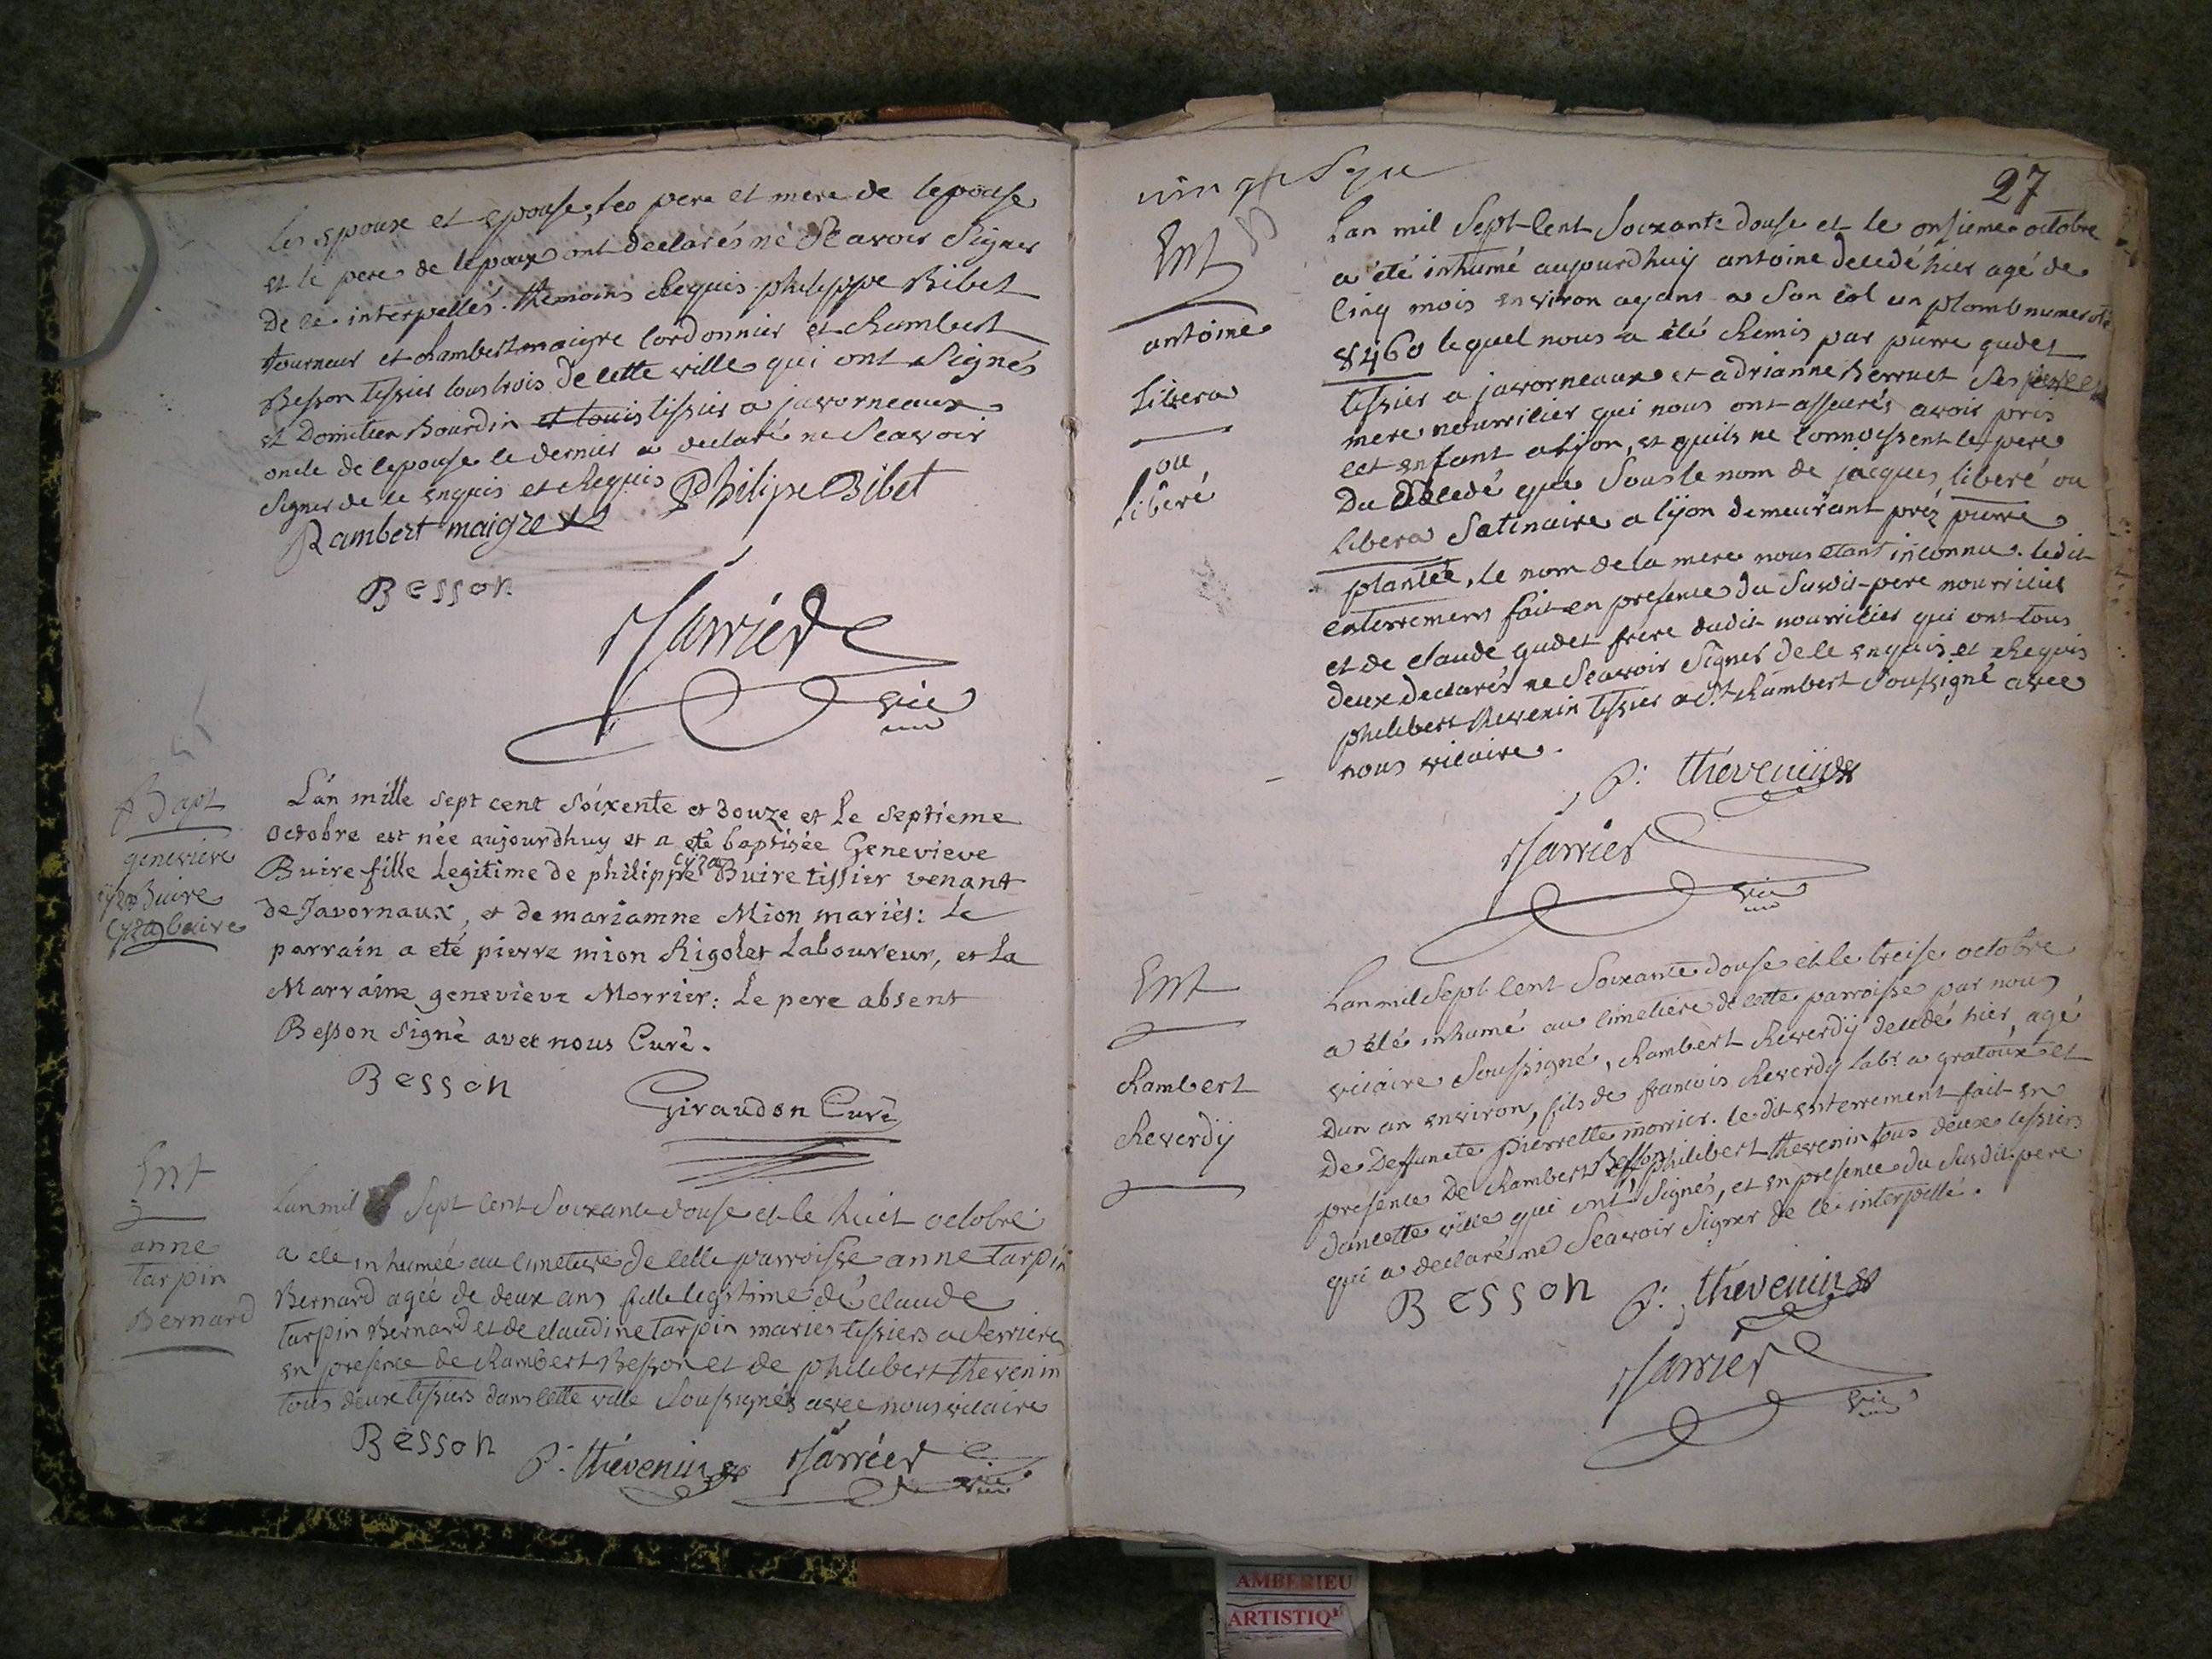 les epoux et epouse, les pere et mere de lepouse
et le pere de lepoux ont declarés ne Sçavoir Signer
De ce interpellés. themoins Requis philippe Bibet
tourneur et Rambert maigre Cordonnier et Rambert
Besson tissier tous trois De cette ville qui ont Signés
et Domitien Bourdin et Louis tissier a javorneaux
oncle de lepouse le dernier a declaré ne Scavoir
Signer de ce enquis et Requis Philipe Bibet
Rambert maigre
Besson
Marrier
vic
Bapt
genevieve
cyza Buire
Cyza buire
L'an mille sept cent soixente et douze et le septieme
octobre est née aujourdhuy et a eté baptisée Genevieve
cyza
Buire fille Legitime de philippe Buire tissier venant
de Javornaux, et de marianne Mion mariés: Le
parrain a eté pierre mion Rigolet Laboureur, et La
Marraine genevieve Morrier: le pere absent
Besson signé avec nous Curé.
Besson
Giraudon Curé
Ent
anne
tarpin
Bernard
Lan mil Sept Cent Soixante douse et le huict octobre
a ete inhumée au Cimetiere de Cette parroisse anne tarpin
Bernard agée de deux ans fille legitime de claude
tarpin Bernard et de claudine tarpin maries tissiers a Serrieres
en presence de Rambert Besson et de philibert thevenin
tous deux tissiers dans cette ville Soussignés avec nous vicaire
Besson P. thevenin Marrier vic
vingt Sept
27
Ent
antoine
Libera
ou
Liberé
Lan mil Sept Cent Soixante douse et le onsieme octobre
a été inhumé aujourdhuy antoine decedé hier agé de
Cinq mois environ ayant a Son Col un plomb numeroté
8460 lequel nous a été Remis par pierre gudet
tissier a javorneaux et adrianne Berruet Ses pere et
mere nourricier qui nous ont asseurés avoir pris
cet enfant a lyon, et quils ne Connoissent le pere
Du Decedé que Sous le nom de jacques liberé ou
libera Satinaire a lÿon demeurant prez pierre
plantée, le nom de la mere nous etant inconnu. ledit
enterrement fait en presence du Susdit pere nourricier
et de claude gudet frere dudit nourricier qui ont tous
deux declarés ne Scavoir Signer de ce enquis et Requis
philibert thevenin tissier a St Rambert Soussigné avec
nous vicaire.
P. thevenin
Marrier
vic
Ent
Rambert
Reverdÿ
Lan mil Sept Cent Soixante douse et le treise octobre
a été inhumé au Cimetiere de cette parroisse par nous
vicaire Soussigné, Rambert Reverdÿ decedé hier, agé
dun an environ, fils de francois Reverdÿ labr a gratoux et
De Deffuncte pierrette morrier. le dit enterrement fait en
presence De Rambert Besson philibert thevenin tous deux tissiers
dans cette ville qui ont Signés, et en presence du Susdit pere
qui a declaré ne Scavoir Signer de ce interpellé.
Besson P. thevenin
Marrier
vic
AMBERIEU
ARTISTIQ